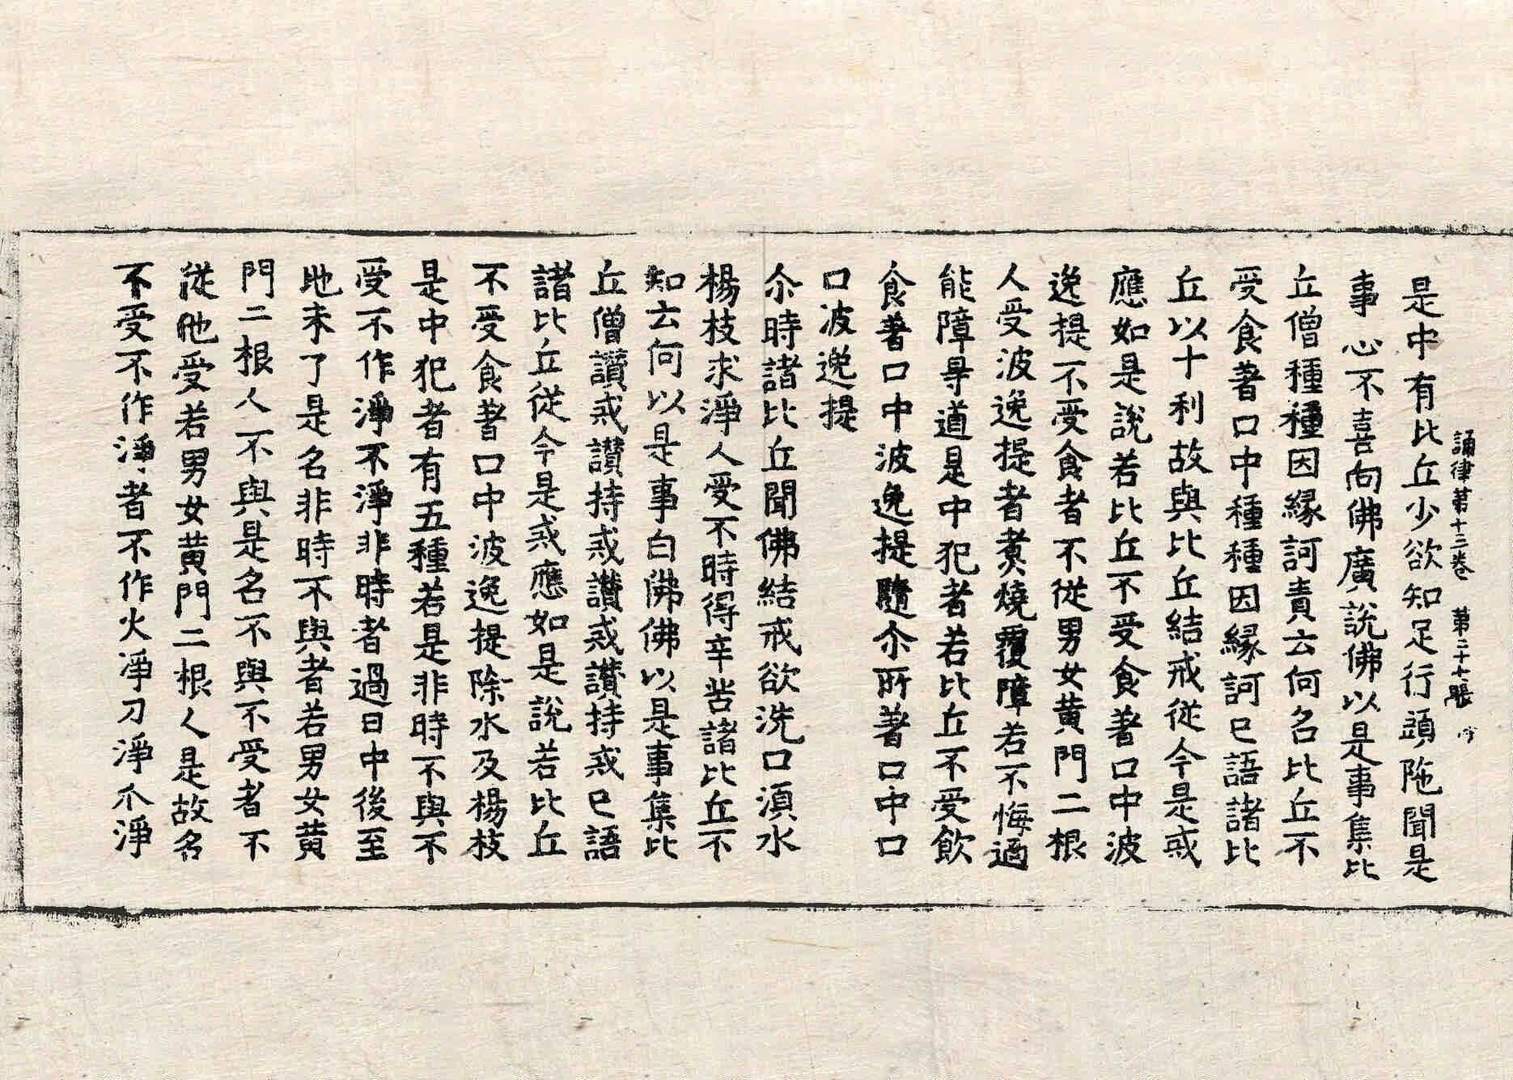 誦律苐十三卷 苐二十七張
是中有比丘少欲知足行頭陁聞是
事心不喜向佛廣說佛以是事集比
丘僧種種因緣訶責云何名比丘不
受食著口中種種因緣訶已語諸比
丘以十利故與比丘結戒從今是戒
應如是說若比丘不受食著口中波
逸提不受食者不從男女黃門二根
人受波逸提者煮燒覆障若不悔過
能障㝵道是中犯者若比丘不受飮
食著口中波逸提隨尒所著口中口
口波逸提
尒時諸比丘聞佛結戒欲洗口湏水
楊枝求淨人受不時得辛苦諸比丘不
知云何以是事白佛佛以是事集比
丘僧讃戒讃持戒讃戒讃持戒已語
諸比丘從今是戒應如是說若比丘
不受食著口中波逸提除水及楊枝
是中犯者有五種若是非時不與不
受不作淨不淨非時者過日中後至
地未了是名非時不與者若男女黃
門二根人不與是名不與不受者不
從他受若男女黃門二根人是故名
不受不作淨者不作火淨刀淨爪淨